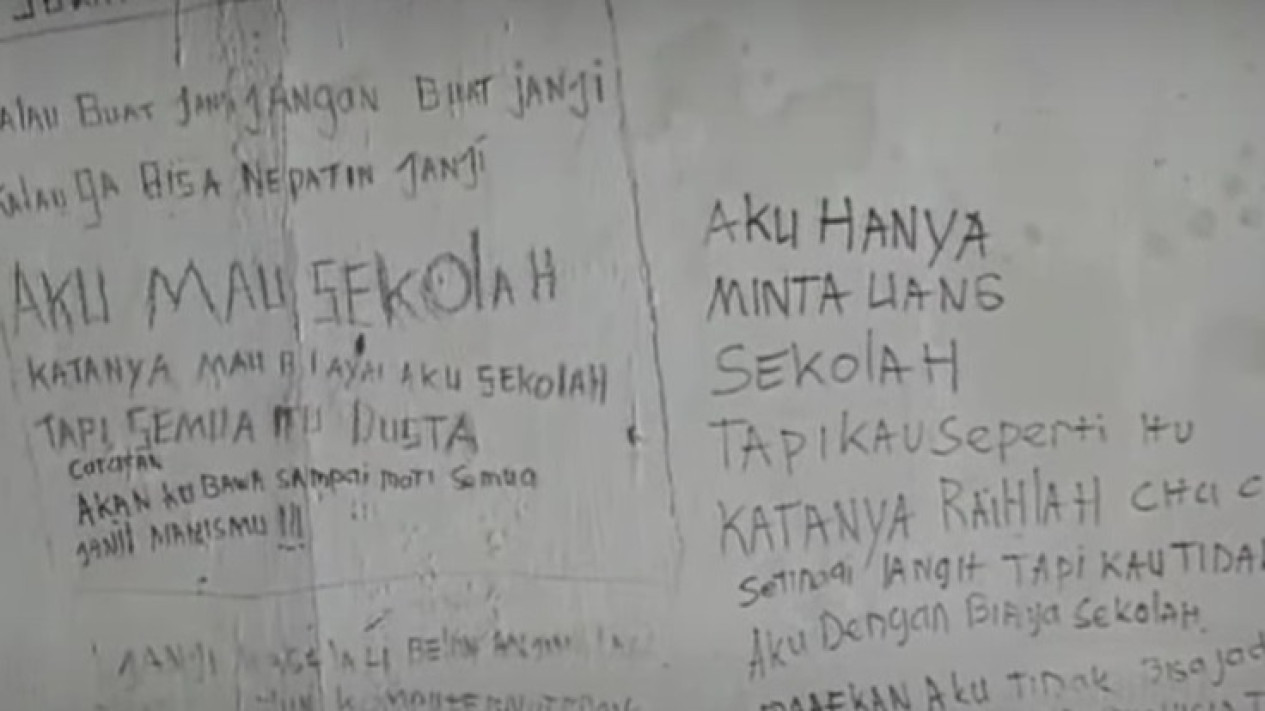 BUAT JANJI JANGAN BUAT JANJI
KALAU GA BISA NEPATIN JANJI
AKU MAU SEKOLAH
KATANYA MAU BIAYAI AKU SEKOLAH
TAPI SEMUA ITU DUSTA
CATATAN
AKAN KU BAWA SAMPAI MATI SEMUA
JANJI MANISMU !!!
JANJI
AKU HANYA
MINTA UANG
SEKOLAH
TAPI KAU SEPERTI ITU
KATANYA RAIHLAH
SETINGGI LANGIT TAPI KAU TIDA
AKU DENGAN BIAYA SEKOLAH.
AKU TIDAK BISA JAD